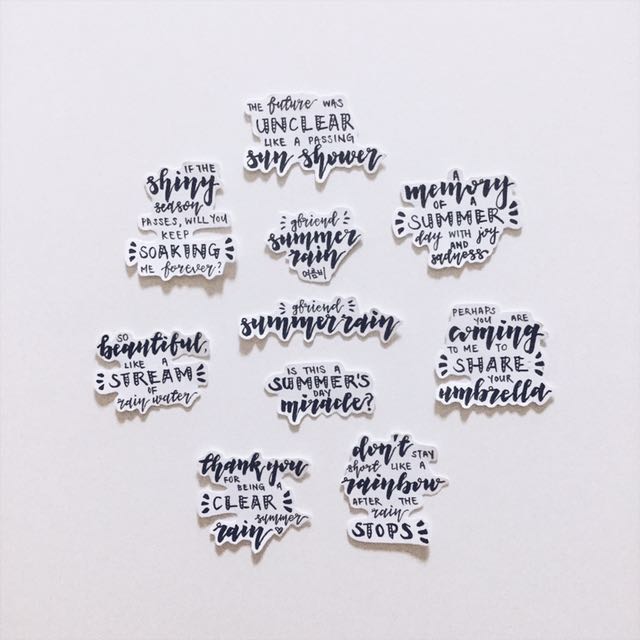 THE future WAS
UNCLEAR
LIKE A PASSING
sun shower
IF THE
shiny
season
PASSES, WILL YOU
KEEP
SOAKING
ME forever?
gfriend
summer
rain
여름비
A
memory
OF A
SUMMER
day WITH joy
AND
sadness
gfriend
summer rain
SO
beautiful,
LIKE A
STREAM
OF
rain water
IS THIS A
SUMMER'S
DAY
miracle?
PERHAPS
YOU ARE
coming
TO ME TO
SHARE
YOUR
umbrella
thank you
FOR
BEING A
CLEAR
summer
rain
don't STAY
short LIKE A
rainbow
AFTER THE
rain
STOPS